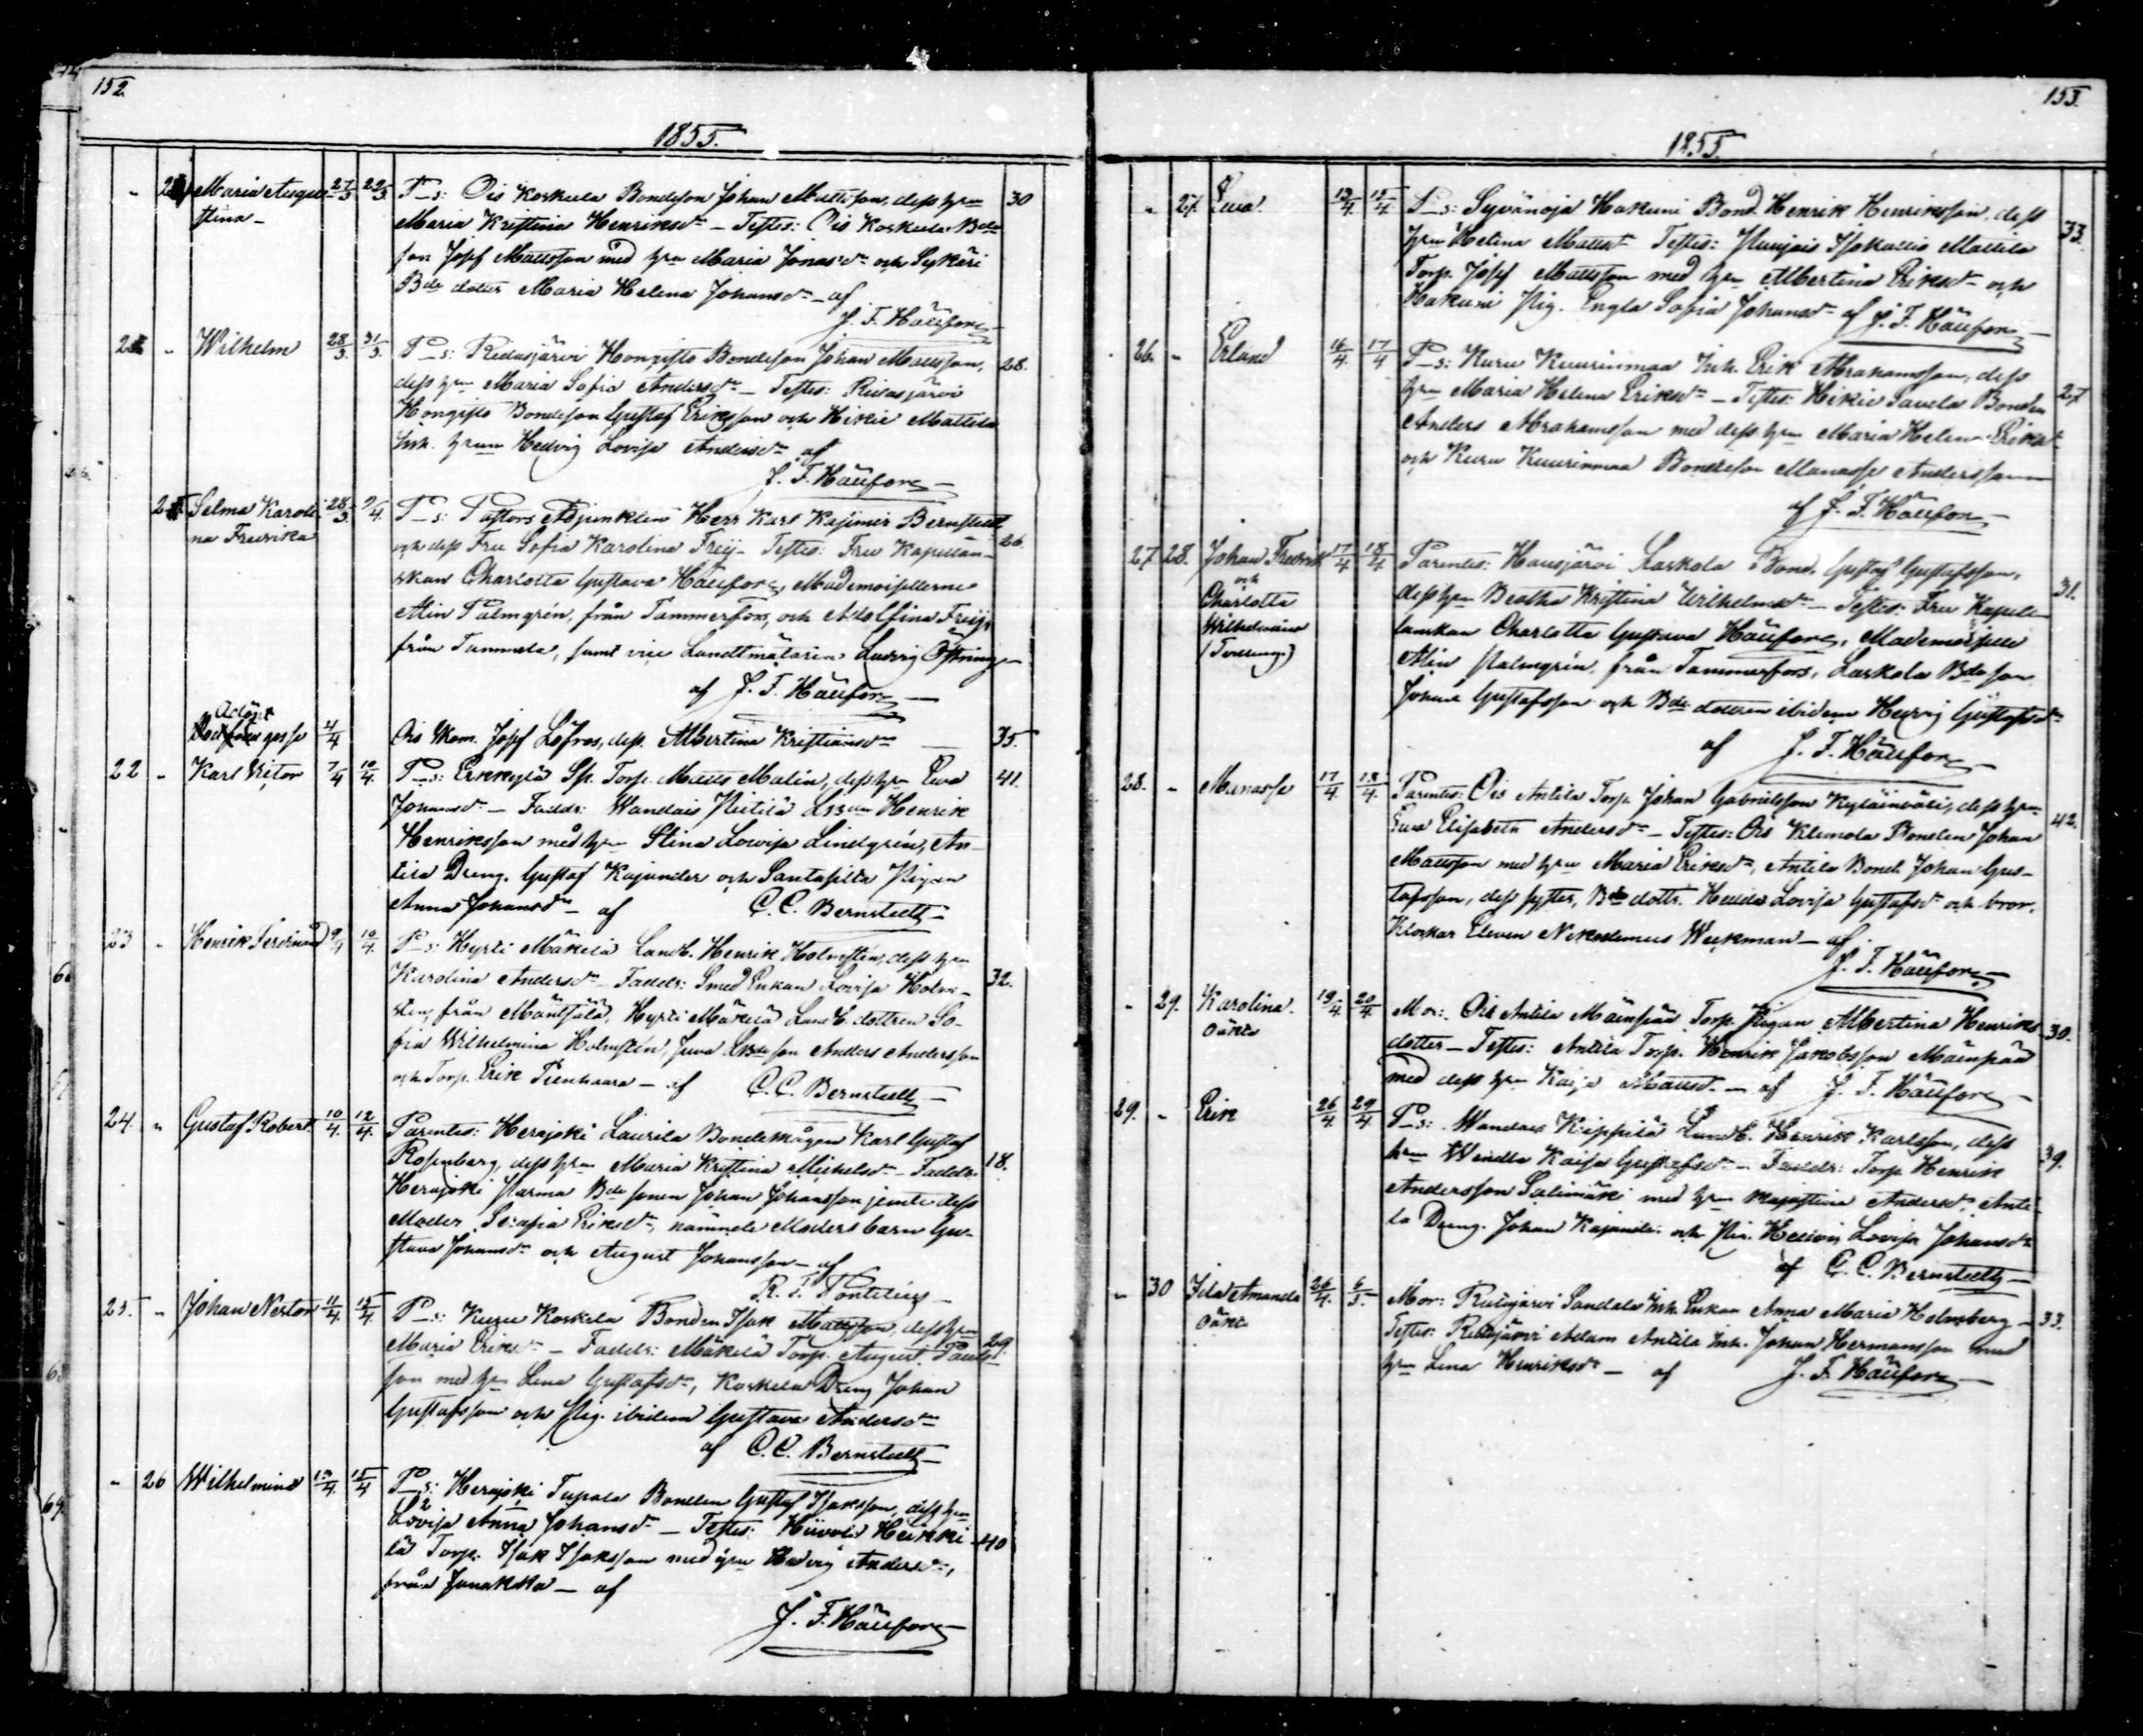 152.
1855.
Maria Augu- 27/3 29/3 P_s: Ois Koskela Bondeson Johan Mattsson, dess hru 30
stina- Maria Kristina Henriksdr - Testes: Ois Koskela Bde
son Josef Mattsson med hru Maria Jonasdr och Sykäri
Bde dotter Maria Helena Johansdr - af
J. F. Häufors
" Wilhelm 28/3 31/3 P_s: Ridasjärvi Hongisto Bondeson Johan Mattsson, 28.
dess hru Maria Sofia Andersdr - Testes: Ridasjärvi
Hongisto Bondeson Gustaf Eriksson och Hikiä Mattila
Inh. hrun Hedvig Lovisa Andersdr af
J. F. Häufors
Selma Karoli- 28/3 P_s: Pastors Adjunkten Herr Karl Kasimir Bernstedt 26.
na Fredrika och dess Fru Sofia Karolina Frey - Testes: Fru Kapellan-
skan Charlotta Gustava Häufors, Mademoisellerne
Alin Palmgrén, från Tammerfors, och Adolfina Frey,
från Tammela, samt vice Landtmätaren Ludvig
af J. F. Häufors
Adopt
gosse 4/4 Ois Josef Löfros, dess Albertina Kristiansdr 35.
22 " Karl Victor 7/4 10/4 P_s: Erkkylä Sp. Torp. Matts Malin, dess hru Eva 41.
Johansdr - Faddr: Wandais Henrik
Henriksson med hru Stina Lovisa Lindgrén, An-
tila Dreng. Gustaf Kajander och Santasilta Pigan
Anna Johansdr - af C. C. Bernstedt
23 " Henrik Ferdinand 9/4 10/4 P_s: Hyrti Mäkelä Landb. Henrik Holmstén, dess hru 32.
Karolina Andersdr - Faddr: Smed Enkan Lovisa Holm-
sten, från Mäntsälä, Hyrti Mäkelä Landb. dottren So-
fia Wilhelmina Holmstén, Juva son Anders Andersson
och Torp. Erik Tienhaara - af C. C. Bernstedt
24. " Gustaf Robert. 10/4 12/4 Parentes: Herajoki Laurila Bondemågen Karl Gustaf 18.
Rosenberg, dess hru Maria Kristina Michelsdr - Faddr:
Herajoki Parma Bde sonen Johan Johansson jemte dess
Moder Serafia Eriksdr, nämnde Moders barn Gu-
stava Johansdr och August Johansson - af
R. F. Pontelius
25. " Johan Nestor 11/4 15/4 P_s: Kuru Koskela Bonden Isak Mattsson, dess hru 29.
Maria Eriksdr - Faddr: Mäkelä Torp. August Pauls-
son med hru Lena Gustafsdr, Koskela Dreng Johan
Gustafsson och Pig. ibidem Gustava Andersdr
af C. C. Bernstedt
" 26 Wilhelmina 13/4 15/4 P_s: Herajoki Tupala Bonden Gustaf Isaksson, dess hru
Lovisa Anna Johansdr - Testes: Hiivola Heikki- 40
lä Torp. Isak Isaksson med hru Hedvig Andersdr,
från Janakkala - af
J. F. Häufors
153.
1855.
" 27. Eva. 13/4 15/4 P_s: Syvänoja Hakuni Bond. Henrik Henriksson, dess 33.
hru Helena Mattsdr Testes: Isokallio Mattila
Torp. Josef Mattsson med hru Albertina Eriksdr och
Hakuni Pig. Engla Sofia Johansdr af J. F. Häufors
26. " Erland 16/4 17/4 P_s: Kuru Kuurinmaa Inh. Erik Abrahamsson, dess 27
hru Maria Helena Eriksdr - Testes: Hikiä Savela Bonden
Anders Abrahamsson med dess hru Maria Helena Eriksdr
och Kuru Kuurinmaa Bondeson Manasse Andersson
af J. F. Häufors
27. 28. Johan Fredrik 17/4 18/4 Parentes: Hausjärvi Laskola Bond. Gustaf Gustafsson, 31.
och dess hru Beatha Kristina Wilhelmsdr - Testes: Fru Kapel-
Charlotta lanskan Charlotta Gustava Häufors, Mademoiselle
Wilhelmina Alin Palmgrén, från Tammerfors, Laskola Bde son
(Tvilling.) Johan Gustafsson och Bde dottren ibidem Hedvig Gustafsdr
af J. F. Häufors
28. " Manasse 17/4 18/4 Parentes: Ois Antila Torp. Johan Gabrielsson Kyläinväli, dess hru 42.
Eva Elisabeth Andersdr - Testes: Ois Klemola Bonden Johan
Mattsson med hru Maria Eriksdr, Antila Bond. Johan Gus-
tafsson, dess syster, Bde dottr. Hedda Lovisa Gustafsdr och bror,
Klockar Eleven Nekodemus Weckman - af
J. F. Häufors
" 29. Karolina. 19/4 20/4 Mor: Ois Antila Mäenpää Torp. Pigan Albertina Henriks- 30.
oäkta dotter - Testes: Antila Torp. Henrik Jakobsson Mäenpää
med dess hru Kaisa Mattsd. - af J. F. Häufors
29. " Erik 26/4 29/4 P_s: Wandais Landb. Henrik Karlsson, dess 39.
hru Wendla Kaisa Gustafsdr - Faddr: Torp. Henrik
Andersson Salimäki med hru Andersdr, Anti-
la Dreng. Johan Kajander och Pig. Hedvig Lovisa Johansdr
af C. C. Bernstedt
" 30 Ida Amanda 26/4 6/5 Mor: Ridasjärvi Sandala Inh. Enkan Anna Maria Holmberg - 33.
oäkta Testes: Ridasjärvi Adam Antila Inh. Johan Hermansson med
hru Lena Henriksdr - af J. F. Häufors